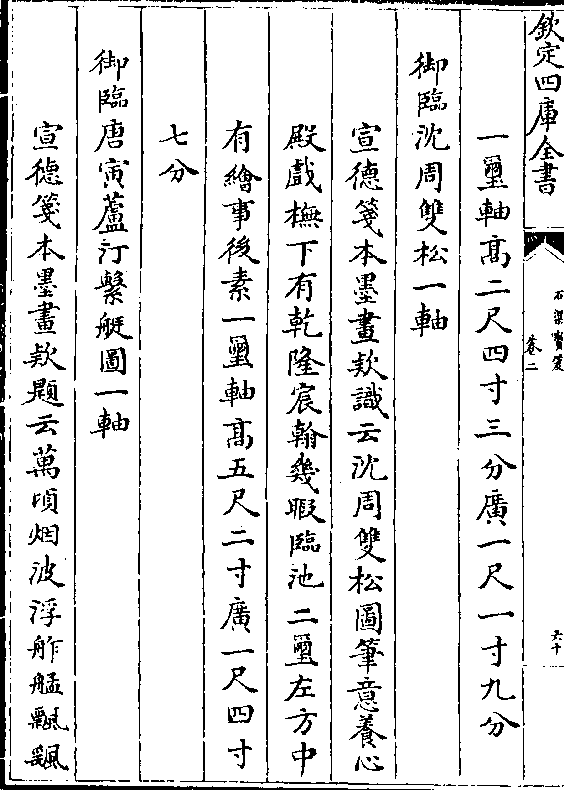 欽定四庫全書
石渠寶笈
卷二
六十
一璽軸髙二尺四寸三分廣一尺一寸九分
御臨沈周雙松一軸
宣德箋本墨畫欵識云沈周雙松圖筆意養心
殿戲橅下有乾隆宸翰幾暇臨池二璽左方中
有繪事後素一璽軸髙五尺二寸廣一尺四寸
七分
御臨唐寅蘆汀繫艇圖一軸
宣德箋本墨畫欵題云萬頃烟波浮舴艋飄飄